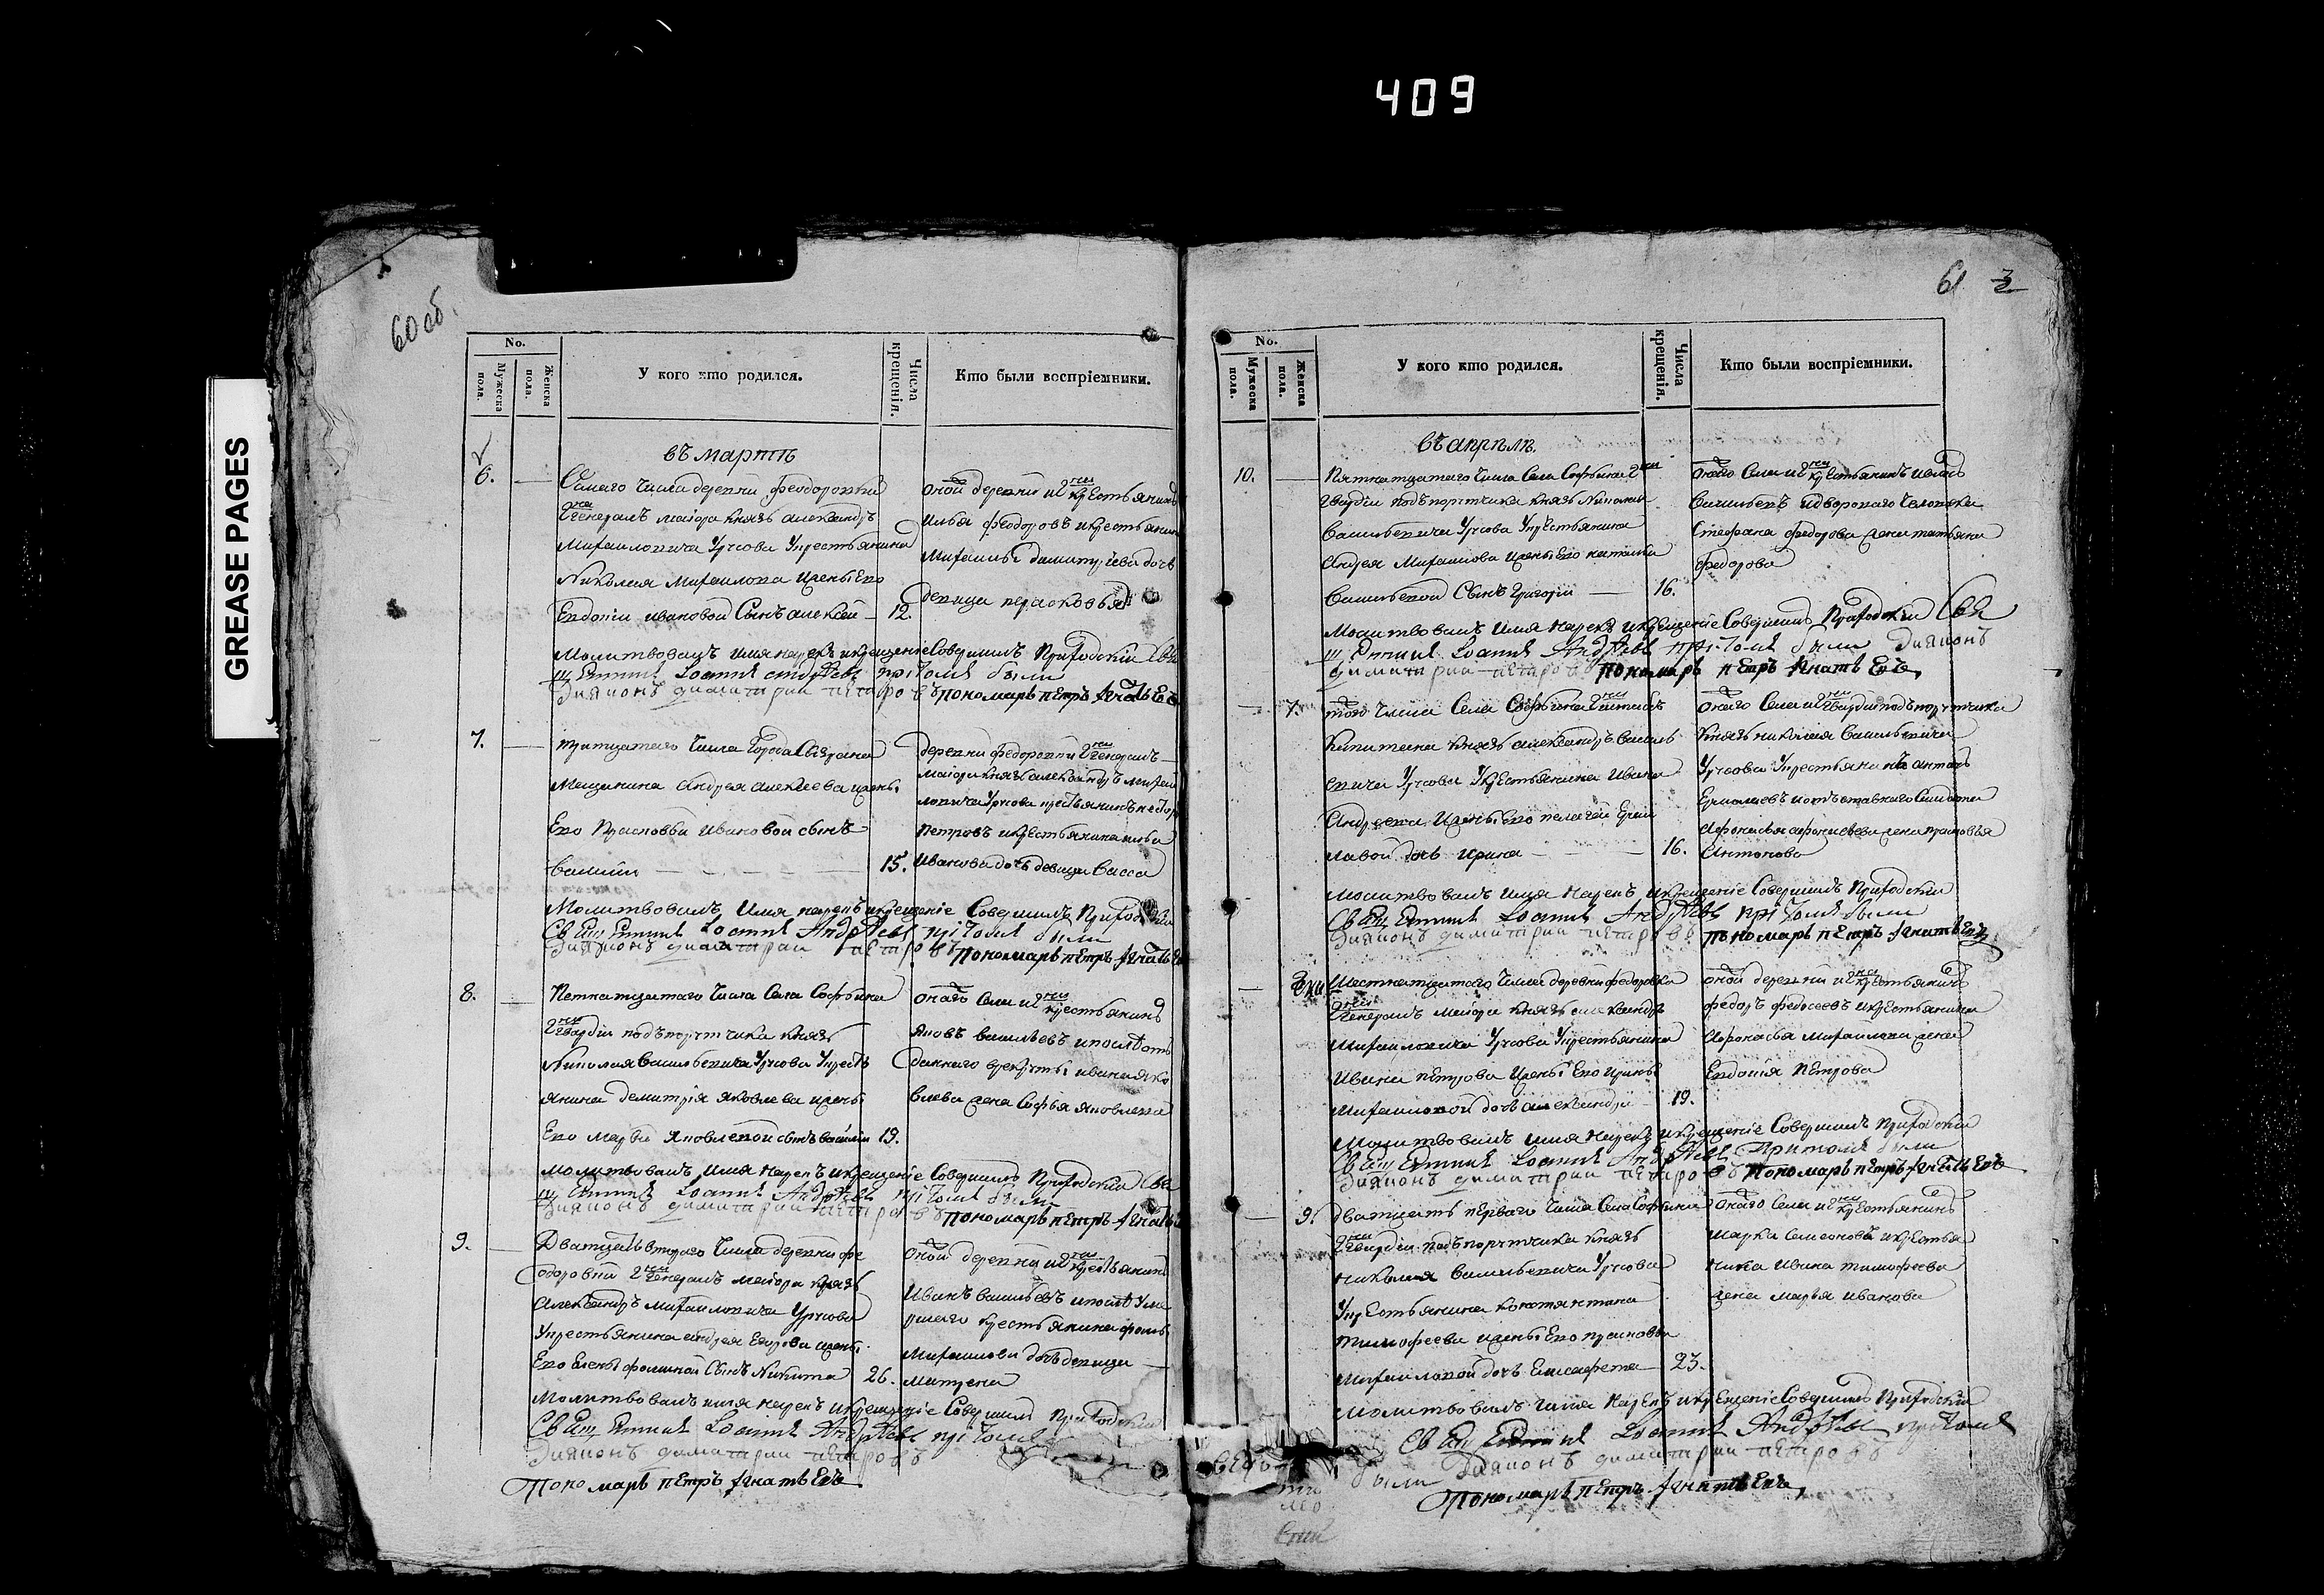 409
GREASE PAGES
60 об.
No.
Мужеска пола.
Женска пола.
У кого кто родился.
Числа крещенія.
Кто были воспріемники.
въ мартѣ
6.
Самаго числа деревни Феодоровки
Гна Генералъ маіора князь александръ
Михаиловича Урусова Укрестьянина
Николая Михаилова ижены Его
Евдокіи ивановой Сынъ алексѣй — 12.
оной деревни и Гна крестьянинъ
Илья феодоровъ икрестьянина
Михаилы димитріева дочь
девица парасковья
Молитвовалъ имя нарекъ икрещеніе Совершилъ Приходскій Свя
щенникъ Іоаннъ андрѣевъ при томъ были
Диаконъ димитрий петровъ пономарь петръ Игнатьевъ
7.
тритцатаго числа Города Сызрана
Мещанина андрея алексеева жены
Его Прасковьи ивановой сынъ
Василий — 15.
деревни федоровки Гна Генералъ
маіора князь александръ михаи
ловича Урусова крестьянинъ федоръ
петровъ икрестьянина ильи
Иванова дочь девица васса
Молитвовалъ Имя нарекъ икрещеніе Совершилъ Приходскій
Священникъ Іоаннъ Андрѣевъ при томъ были
Диаконъ димитрий петровъ пономарь петръ Игнатьевъ
8.
Петнатцатаго числа Села Софьина
Гна Гвардіи подъпорутчика князь
Николая Васильевича Урусова Укресть
янина демитрія яковлева ижены
Его марьи яковлевой сынъ василій 19.
онаго Села и Гна крестьянинъ
яковъ васильевъ
данного врекруты ивана яко
влева жена Софья яковлева
Молитвовалъ имя нарекъ икрещеніе Совершилъ Приходскій Свя
щенникъ Іоаннъ Андрѣевъ при томъ были
Диаконъ димитрий петровъ пономарь петръ Игнатьевъ
9.
Дватцать втораго числа деревни фе
одоровки Гна Генералъ маіора князь
Александръ михаиловича Урусова
Укрестьянина андрея Егорова ижены
Его Елены фоминой Сынъ Никита 26.
оной деревни и Гна крестьянинъ
Иванъ васильевъ
ршаго крестьянина фомы
Михаилова дочь девица —
матрена
Молитвовалъ имя нарекъ икрещеніе Совершилъ Приходскій
Священникъ Іоаннъ Андрѣевъ при томъ
Диаконъ димитрий петровъ
Пономарь петръ Игнатьевъ
61
No.
Мужеска пола.
Женска пола.
У кого кто родился.
Числа крещенія.
Кто были воспріемники.
въ апрѣлѣ.
10.
Пятнатцатаго числа Села Софьина Гна
Гвардіи подъпорутчика князь Николая
Васильевича Урусова Укрестьянина
Андрея Михаилова ижены Его натальи
Васильевой Сынъ Григорій — 16.
онаго Села и Гна крестьянинъ
Васильевъ идвороваго человѣка
Стефана федорова жена татьяна
федорова
Молитвовалъ имя нарекъ икрещеніе Совершилъ Приходскій Свя
щенникъ Іоаннъ Андрѣевъ при томъ были диаконъ
димитрий петровъ пономарь петръ Игнатьевъ
7.
того числа Села Софьина Гна штапсъ
Капитана князь александръ василь
евича Урусова Укрестьянина Ивана
Андреева ижены Его пелагеи Ермо
лаевой дочь ирина — 16.
онаго Села и Гна Гвардіи подъпорутчика
Князь николая Васильевича
Урусова Укрестьянинъ антонъ
Ермолаевъ иотъставнаго Солдата
Афонасья афонасьева жена прасковья
Антонова
Молитвовалъ имя нарекъ икрещеніе Совершилъ Приходскій
Священникъ Іоаннъ Андрѣевъ при томъ были
диаконъ димитрий петровъ пономарь петръ Игнатьевъ
Шестнатцатаго числа деревни федоровки
Гна Генералъ маіора князь александръ
Михаиловича Урусова Укрестьянина
Ивана петрова ижены Его ирины
Михаиловой дочь александра — 19.
оной деревни и Гна крестьянинъ
федоръ федосеевъ икрестьянина
Афонасья Михаилова жена
Евдокія Петрова
Молитвовалъ имя нарекъ икрещеніе Совершилъ Приходскій
Священникъ Іоаннъ Андрѣевъ При томъ были
диаконъ димитрий петровъ пономарь петръ Игнатьевъ
9.
дватцать перваго числа Села Софьина
Гна Гвардіи подъпорутчика князь
николая васильевича Урусова
Укрестьянина константина
тимофеева ижены Его прасковьи
Михаиловой дочь Елисавета — 23.
онаго Села и Гна крестьянинъ
марка Семеоновъ икрестья
нина Ивана тимофеева
жена марья иванова
Молитвовалъ имя нарекъ икрещеніе Совершилъ Приходскій
Священникъ Іоаннъ Андрѣевъ при томъ
были диаконъ димитрий петровъ
Пономарь петръ Игнатьевъ